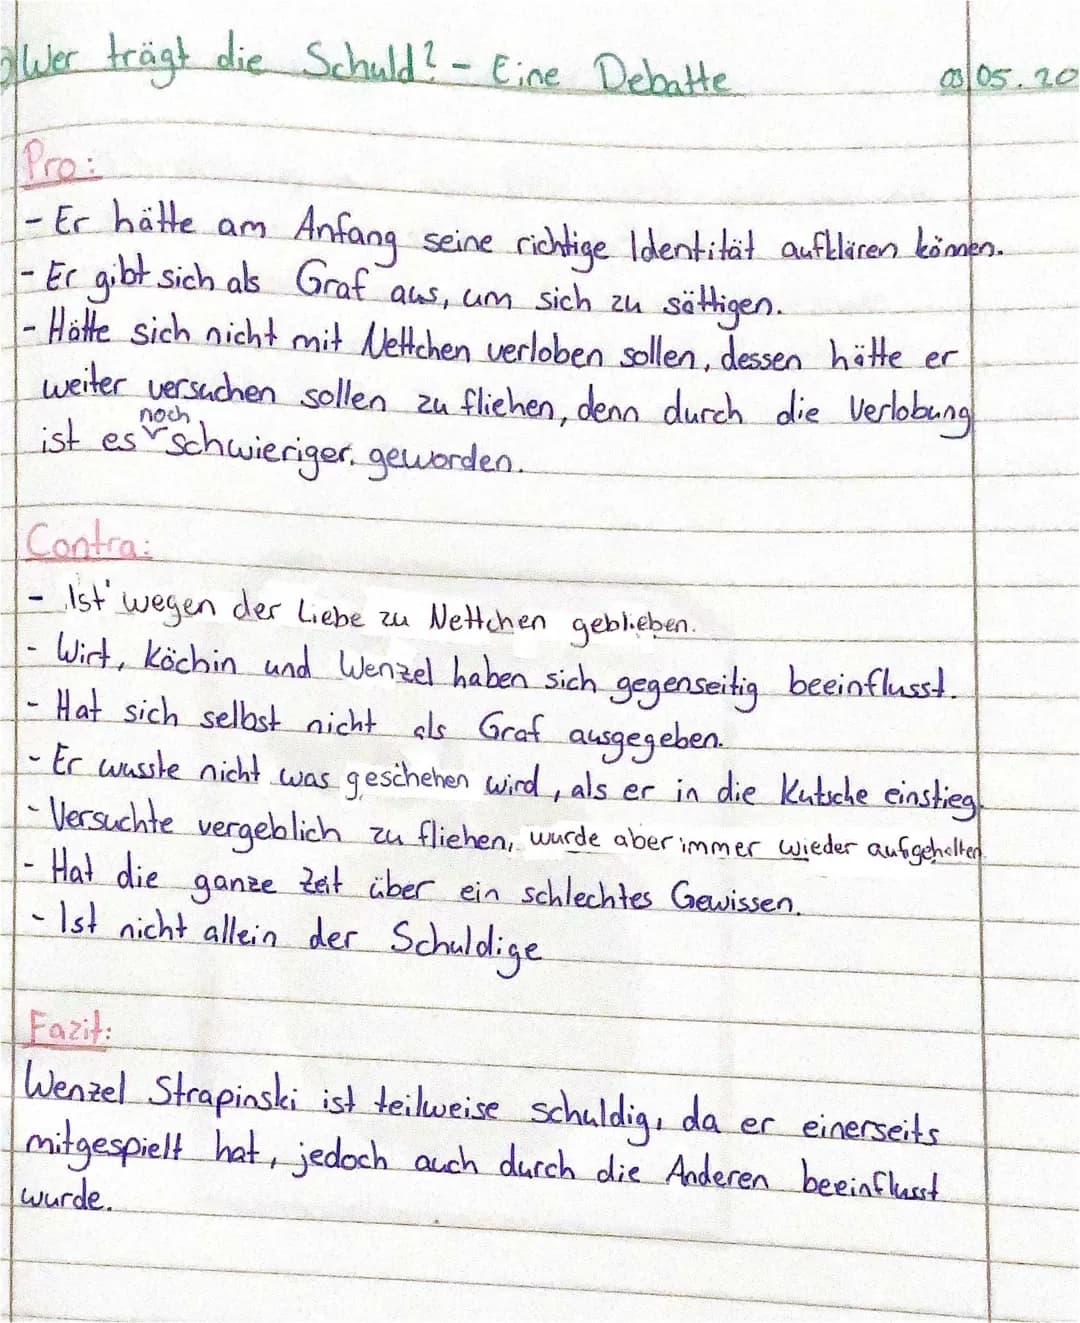 Wer trägt die Schuld? - Eine Debatte 03.05.20
Pro:
- Er hätte am Anfang seine richtige Identität aufklären können.
- Er gibt sich als Graf aus, um sich zu sättigen.
- Hätte sich nicht mit Nettchen verloben sollen, dessen hätte er
weiter versuchen sollen zu fliehen, denn durch die Verlobung
ist es noch schwieriger geworden.
Contra:
- Ist wegen der Liebe zu Nettchen geblieben.
- Wirt, Köchin und Wenzel haben sich gegenseitig beeinflusst.
- Hat sich selbst nicht als Graf ausgegeben.
- Er wusste nicht was geschehen wird, als er in die Kutsche einstieg.
- Versuchte vergeblich zu fliehen, wurde aber immer wieder aufgehalten.
- Hat die ganze Zeit über ein schlechtes Gewissen.
- Ist nicht allein der Schuldige
Fazit:
Wenzel Strapinski ist teilweise schuldig, da er einerseits
mitgespielt hat, jedoch auch durch die Anderen beeinflusst
wurde.